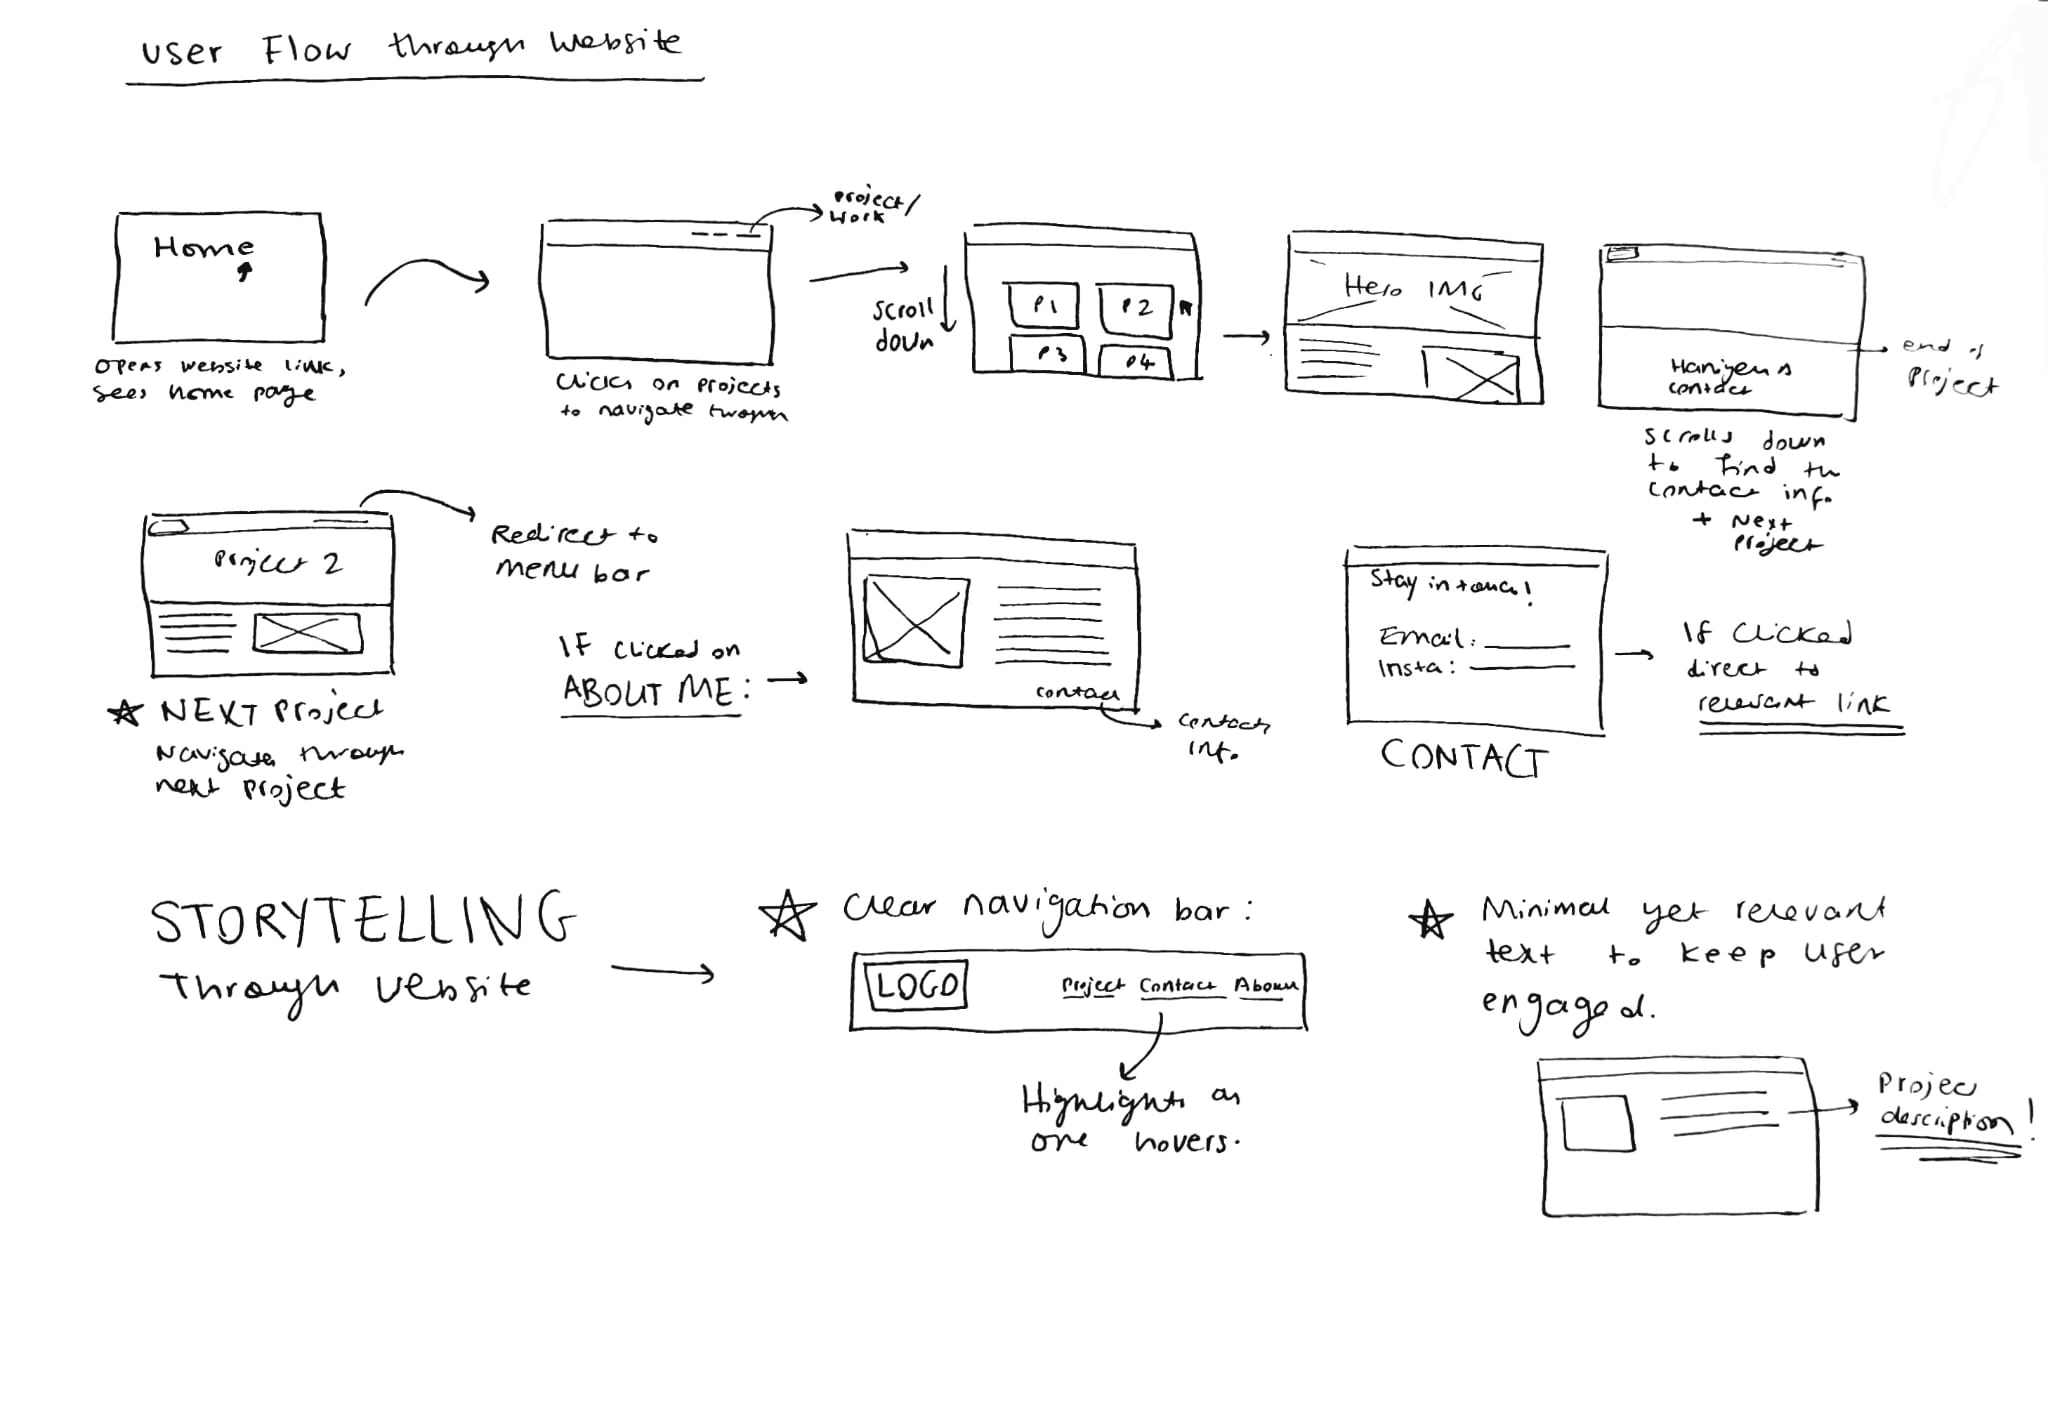 User Flow through Website
Home
Opens website link,
sees home page
project/
work
Clicks on projects
to navigate through
scroll
down
P1
P2
P3
P4
Hero IMG
contact
end of
project
scrolls down
to find the
contact info.
+ Next
project
project 2
Redirect to
menu bar
NEXT project
Navigate through
next project
IF clicked on
ABOUT ME:
contact
contact
inf.
Stay in touch!
Email:
Insta:
CONTACT
If clicked
direct to
relevant link
STORYTELLING
Through website
Clear navigation bar:
LOGO
Project Contact About
Highlights as
one hovers.
Minimal yet relevant
text to keep user
engaged.
Project
description!